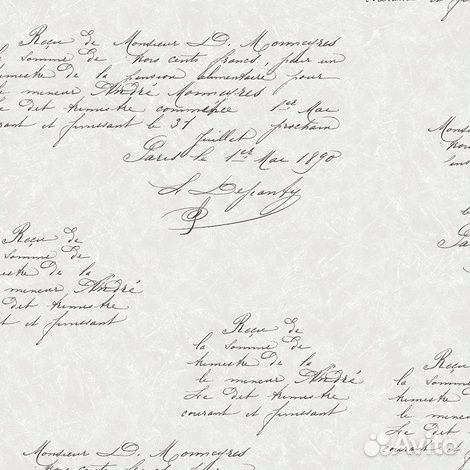 courant et fi
Reçu de Monsieur D. Monmeyres
la somme de trois cents francs, pour un
trimestre de la pension alimentaire pour
le mineur André Monmeyres
Le dit trimestre commence 1er Mai
courant et finissant le 31 Juillet prochain
Paris le 1er Mai 1890
Monsieur
trois
Pa
Reçu de
la somme de
trimestre de la
le mineur André
Le dit trimestre
courant et finissant
Reçu de
la somme de
trimestre de la
le mineur André
Le dit trimestre
courant et finissant
Reçu
la somme
trimestre de
le mineur
Le dit
courant et
Monsieur D. Monmeyres
trois cents francs
Avito